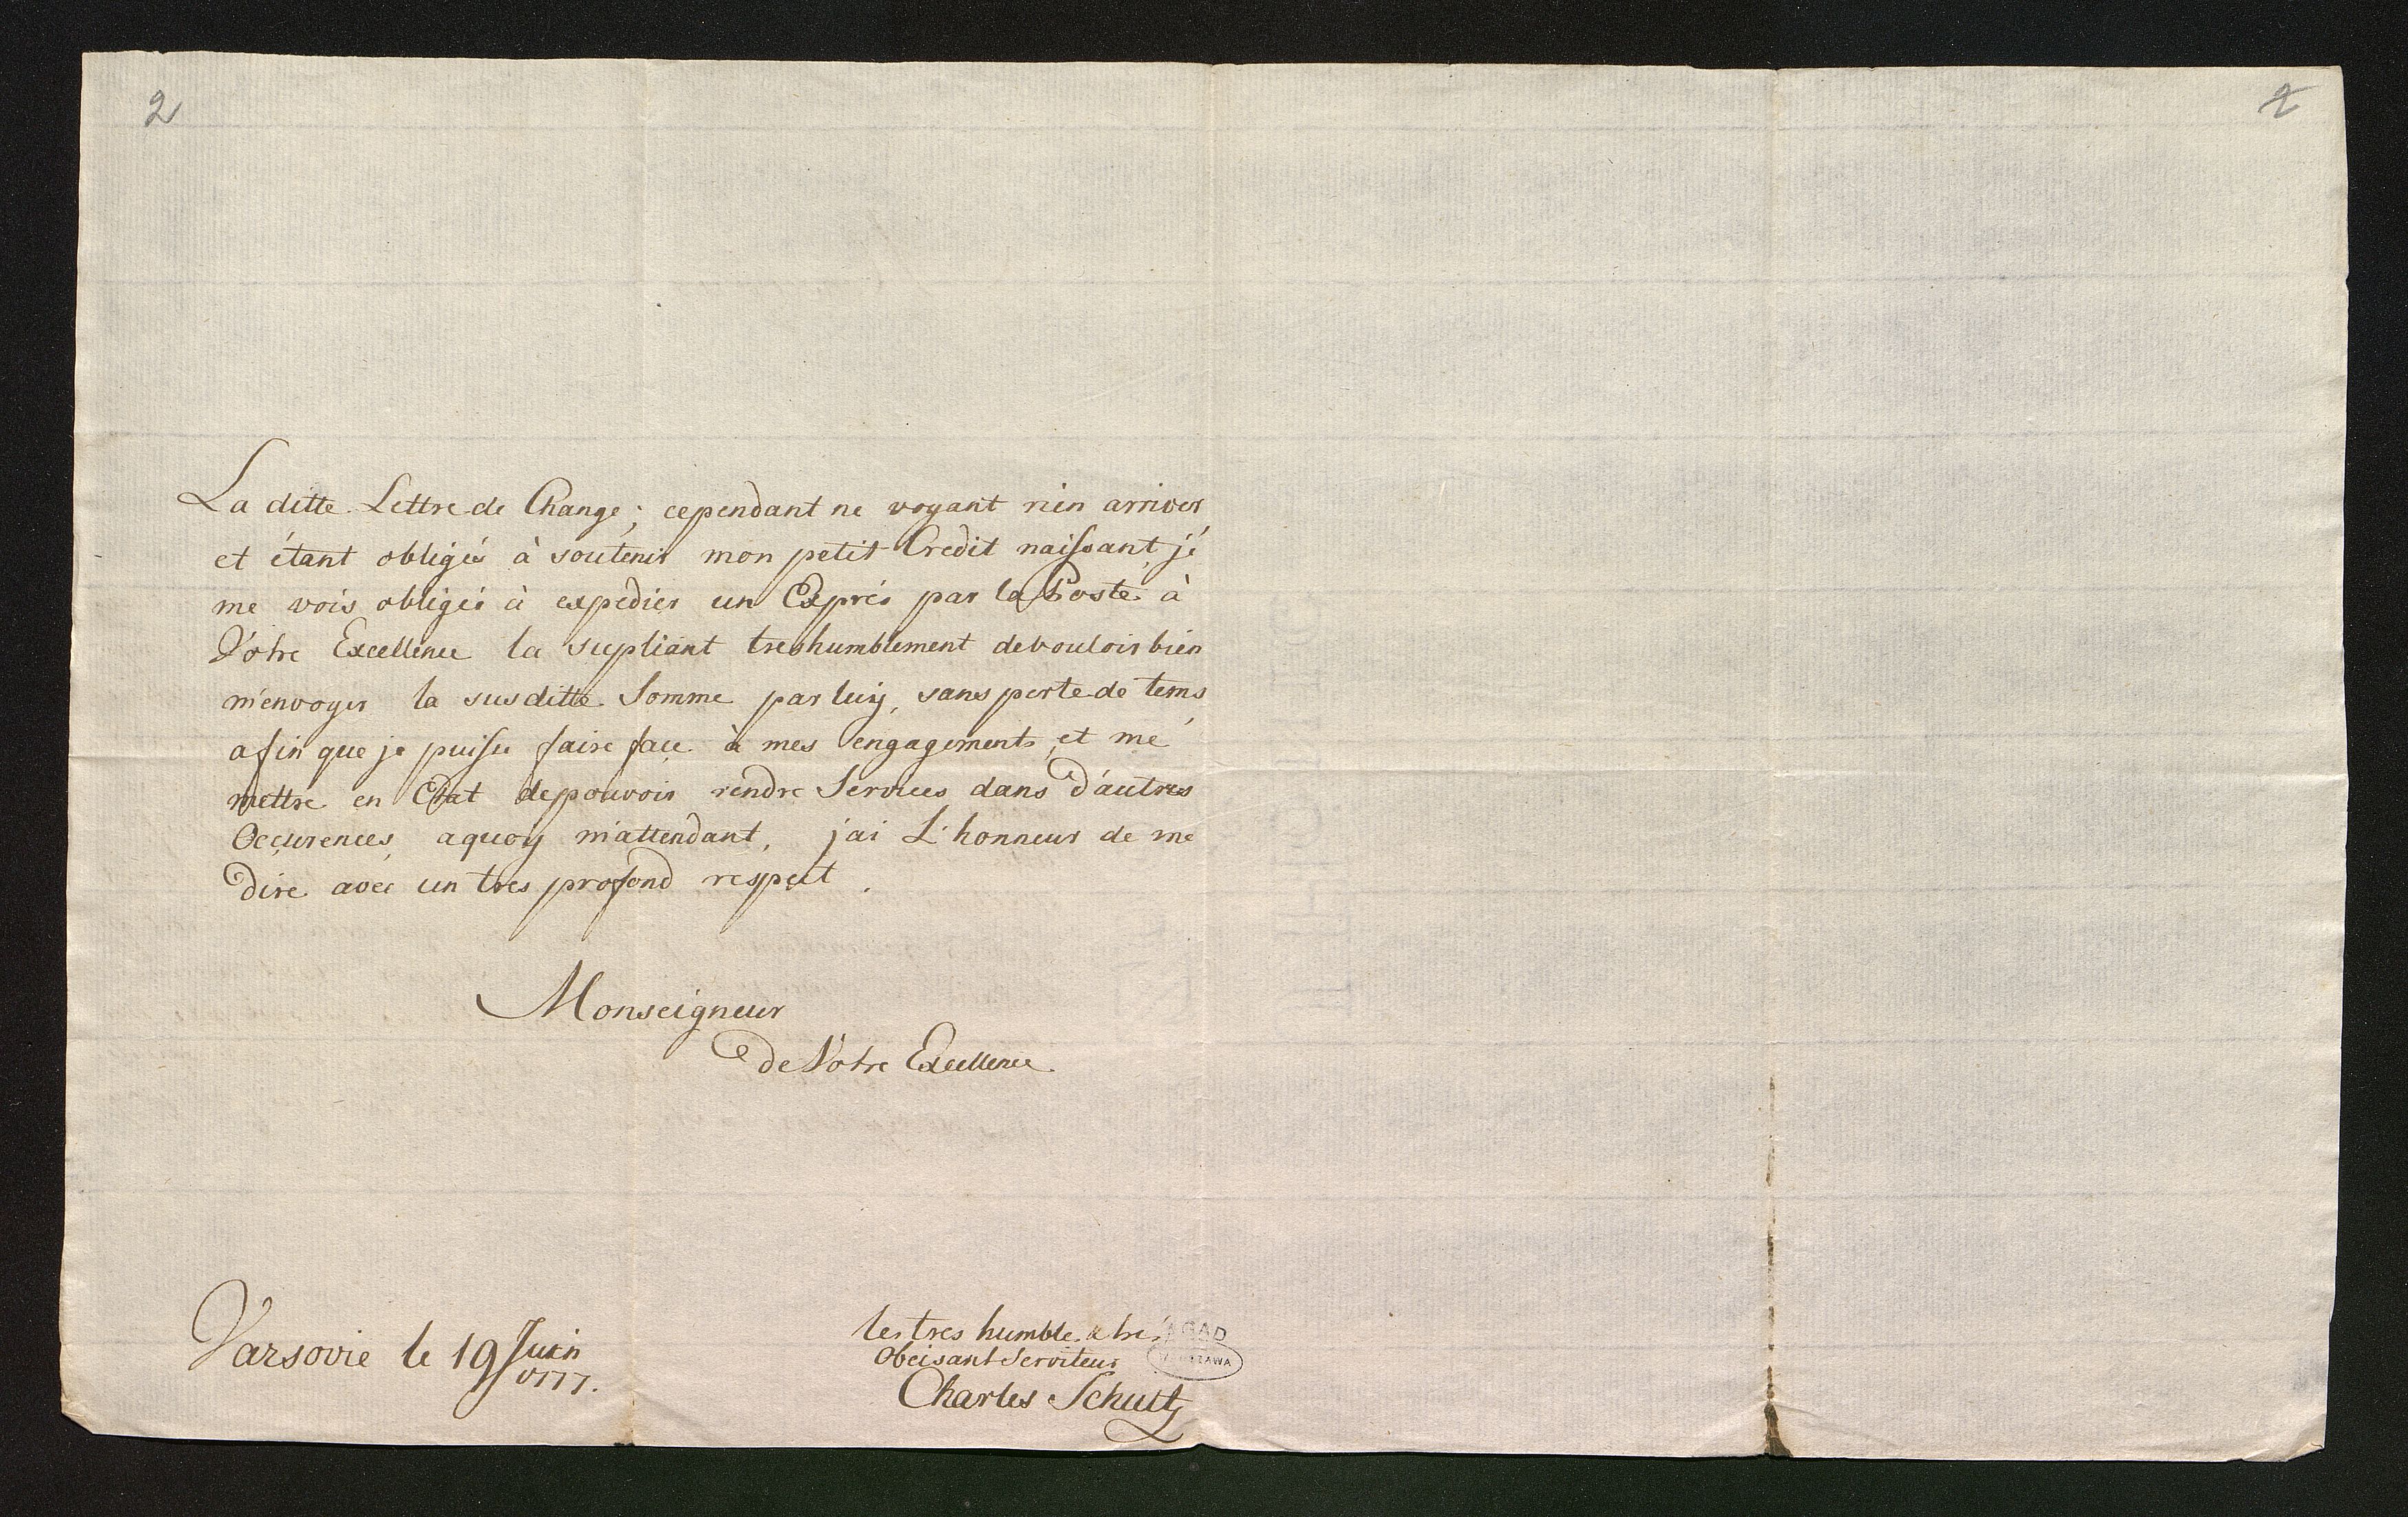 2
2
La ditte Lettre de Change; cependant ne voyant rien arriver
et étant obligés à soutenir mon petit Credit naissant, je
me vois obligés à expedier un Exprés par la Poste à
Votre Excellence la supliant treshumblement de vouloir bien
m'envoyer la susditte Somme par luy, sans perte de tems,
afin que je puisse faire face à mes engagements, et me
mettre en Etat de pouvoir rendre Services dans d'autres
Occurences, aquoy m'attendant, j'ai L'honneur de me
dire avec un tres profond respect.
Monseigneur
de Votre Excellence
Varsovie le 19 Juin
1777.
le tres humble & tres
Obeisant Serviteur
Charles Schultz
AGAD
WARSZAWA